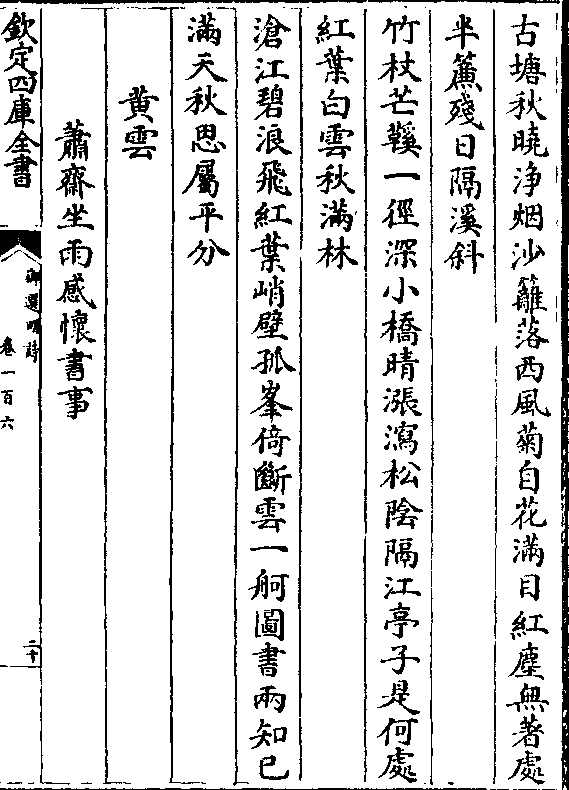 古塘秋曉浄烟沙籬落西風菊自花滿目紅塵無著處
半簾殘日隔溪斜
竹杖芒鞵一徑深小橋晴漲瀉松陰隔江亭子是何處
紅葉白雲秋滿林
滄江碧浪飛紅葉峭壁孤峯倚斷雲一舸圖書兩知已
滿天秋思屬平分
黄雲
蕭齋坐雨感懷書事
欽定四庫全書
御選明詩
卷一百六
二十